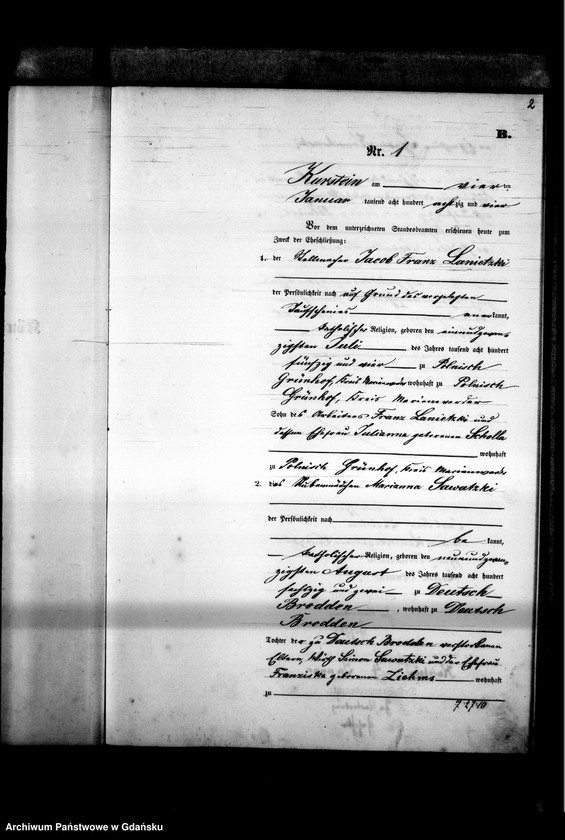 2
B.
Nr. 1
Kurstein am vier ten
Januar tausend acht hundert achtzig und vier
Vor dem unterzeichneten Standesbeamten erschienen heute zum
Zweck der Eheschließung:
1. der Stellmacher Jacob Franz Lanietzki
der Persönlichkeit nach auf Grund des vorgelegten
Taufscheines anerkannt,
katholischer Religion, geboren den einundzwan-
zigsten Juli des Jahres tausend acht hundert
fünfzig und vier zu Polnisch
Grünhof, Kreis Marienwerder wohnhaft zu Polnisch
Grünhof, Kreis Marienwerder
Sohn des Arbeiters Franz Lanietzki und
dessen Ehefrau Julianna geborenen Scholla
wohnhaft
zu Polnisch Grünhof, Kreis Marienwerder
2. das Marianna Sawatzki
der Persönlichkeit nach
be kannt,
katholischer Religion, geboren den neunundzwan-
zigsten August des Jahres tausend acht hundert
sechzig und zwei zu Deutsch
Brodden, wohnhaft zu Deutsch
Brodden
Tochter der zu Deutsch Brodden verstorbenen
Eltern, Simon Sawatzki und der Ehefrau
Franziska geborenen Ziehms wohnhaft
zu
Archiwum Państwowe w Gdańsku